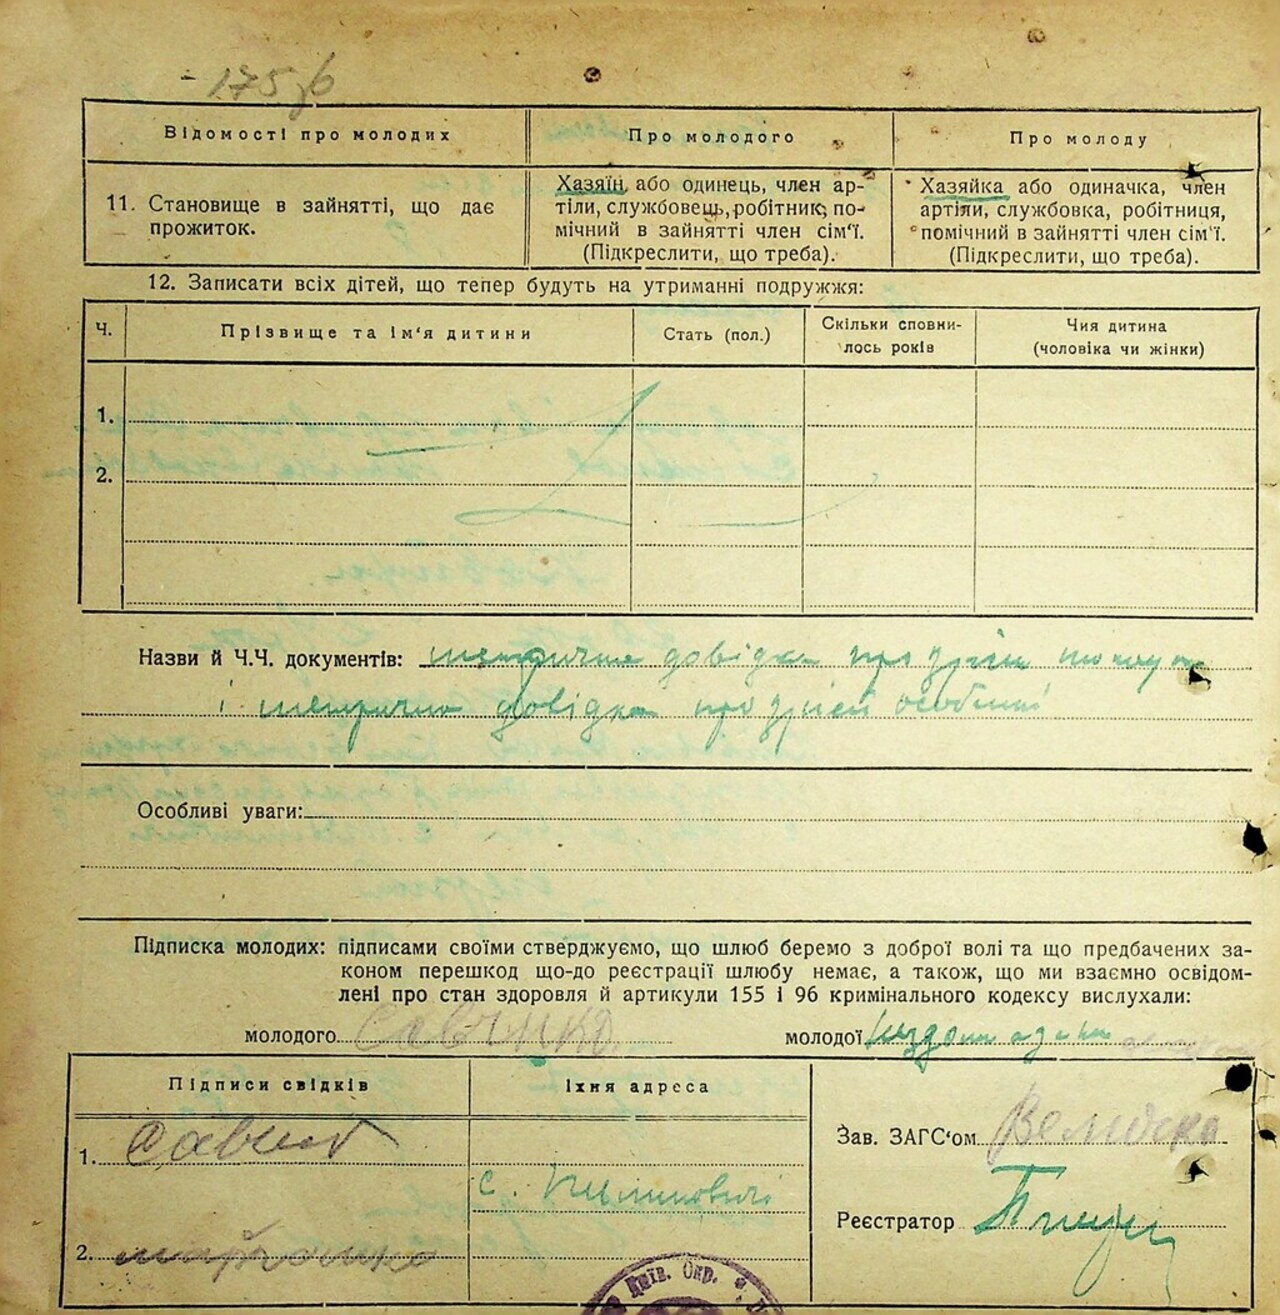 Відомості про молодих
Про молодого
Про молоду
11. Становище в зайнятті, що дає
прожиток.
Хазяїн, або одинець, член ар-
тілі, службовець, робітник, по-
мічний в зайнятті член сім'ї.
(Підкреслити, що треба).
Хазяйка або одиначка, член
артіли, службовка, робітниця,
помічний в зайнятті член сім'ї.
(Підкреслити, що треба).
12. Записати всіх дітей, що тепер будуть на утриманні подружжя:
Ч.
Прізвище та ім'я дитини
Стать (пол.)
Скільки сповни-
лось років
Чия дитина
(чоловіка чи жінки)
1.
2.
Назви й Ч.Ч. документів: довідка про
і довідка про особи
Особливі уваги:
Підписка молодих: підписами своїми стверджуємо, що шлюб беремо з доброї волі та що предбачених за-
коном перешкод що-до реєстрації шлюбу немає, а також, що ми взаємно освідом-
лені про стан здоровля й артикули 155 і 96 кримінального кодексу вислухали:
молодого Савчнко
молодої
Підписи свідків
Їхня адреса
1.
с.
2.
Зав. ЗАГС'ом
Реєстратор
Київ. Окр.